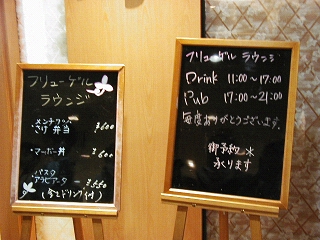 フリューゲル
ラウンジ
メンチカツ
弁当 ¥600
マーボー丼 ¥600
パスタ
アラビアータ ¥550
フリューゲル ラウンジ
Drink 11:00〜17:00
Pub 17:00〜21:00
毎度ありがとうございます。
御予約
承ります